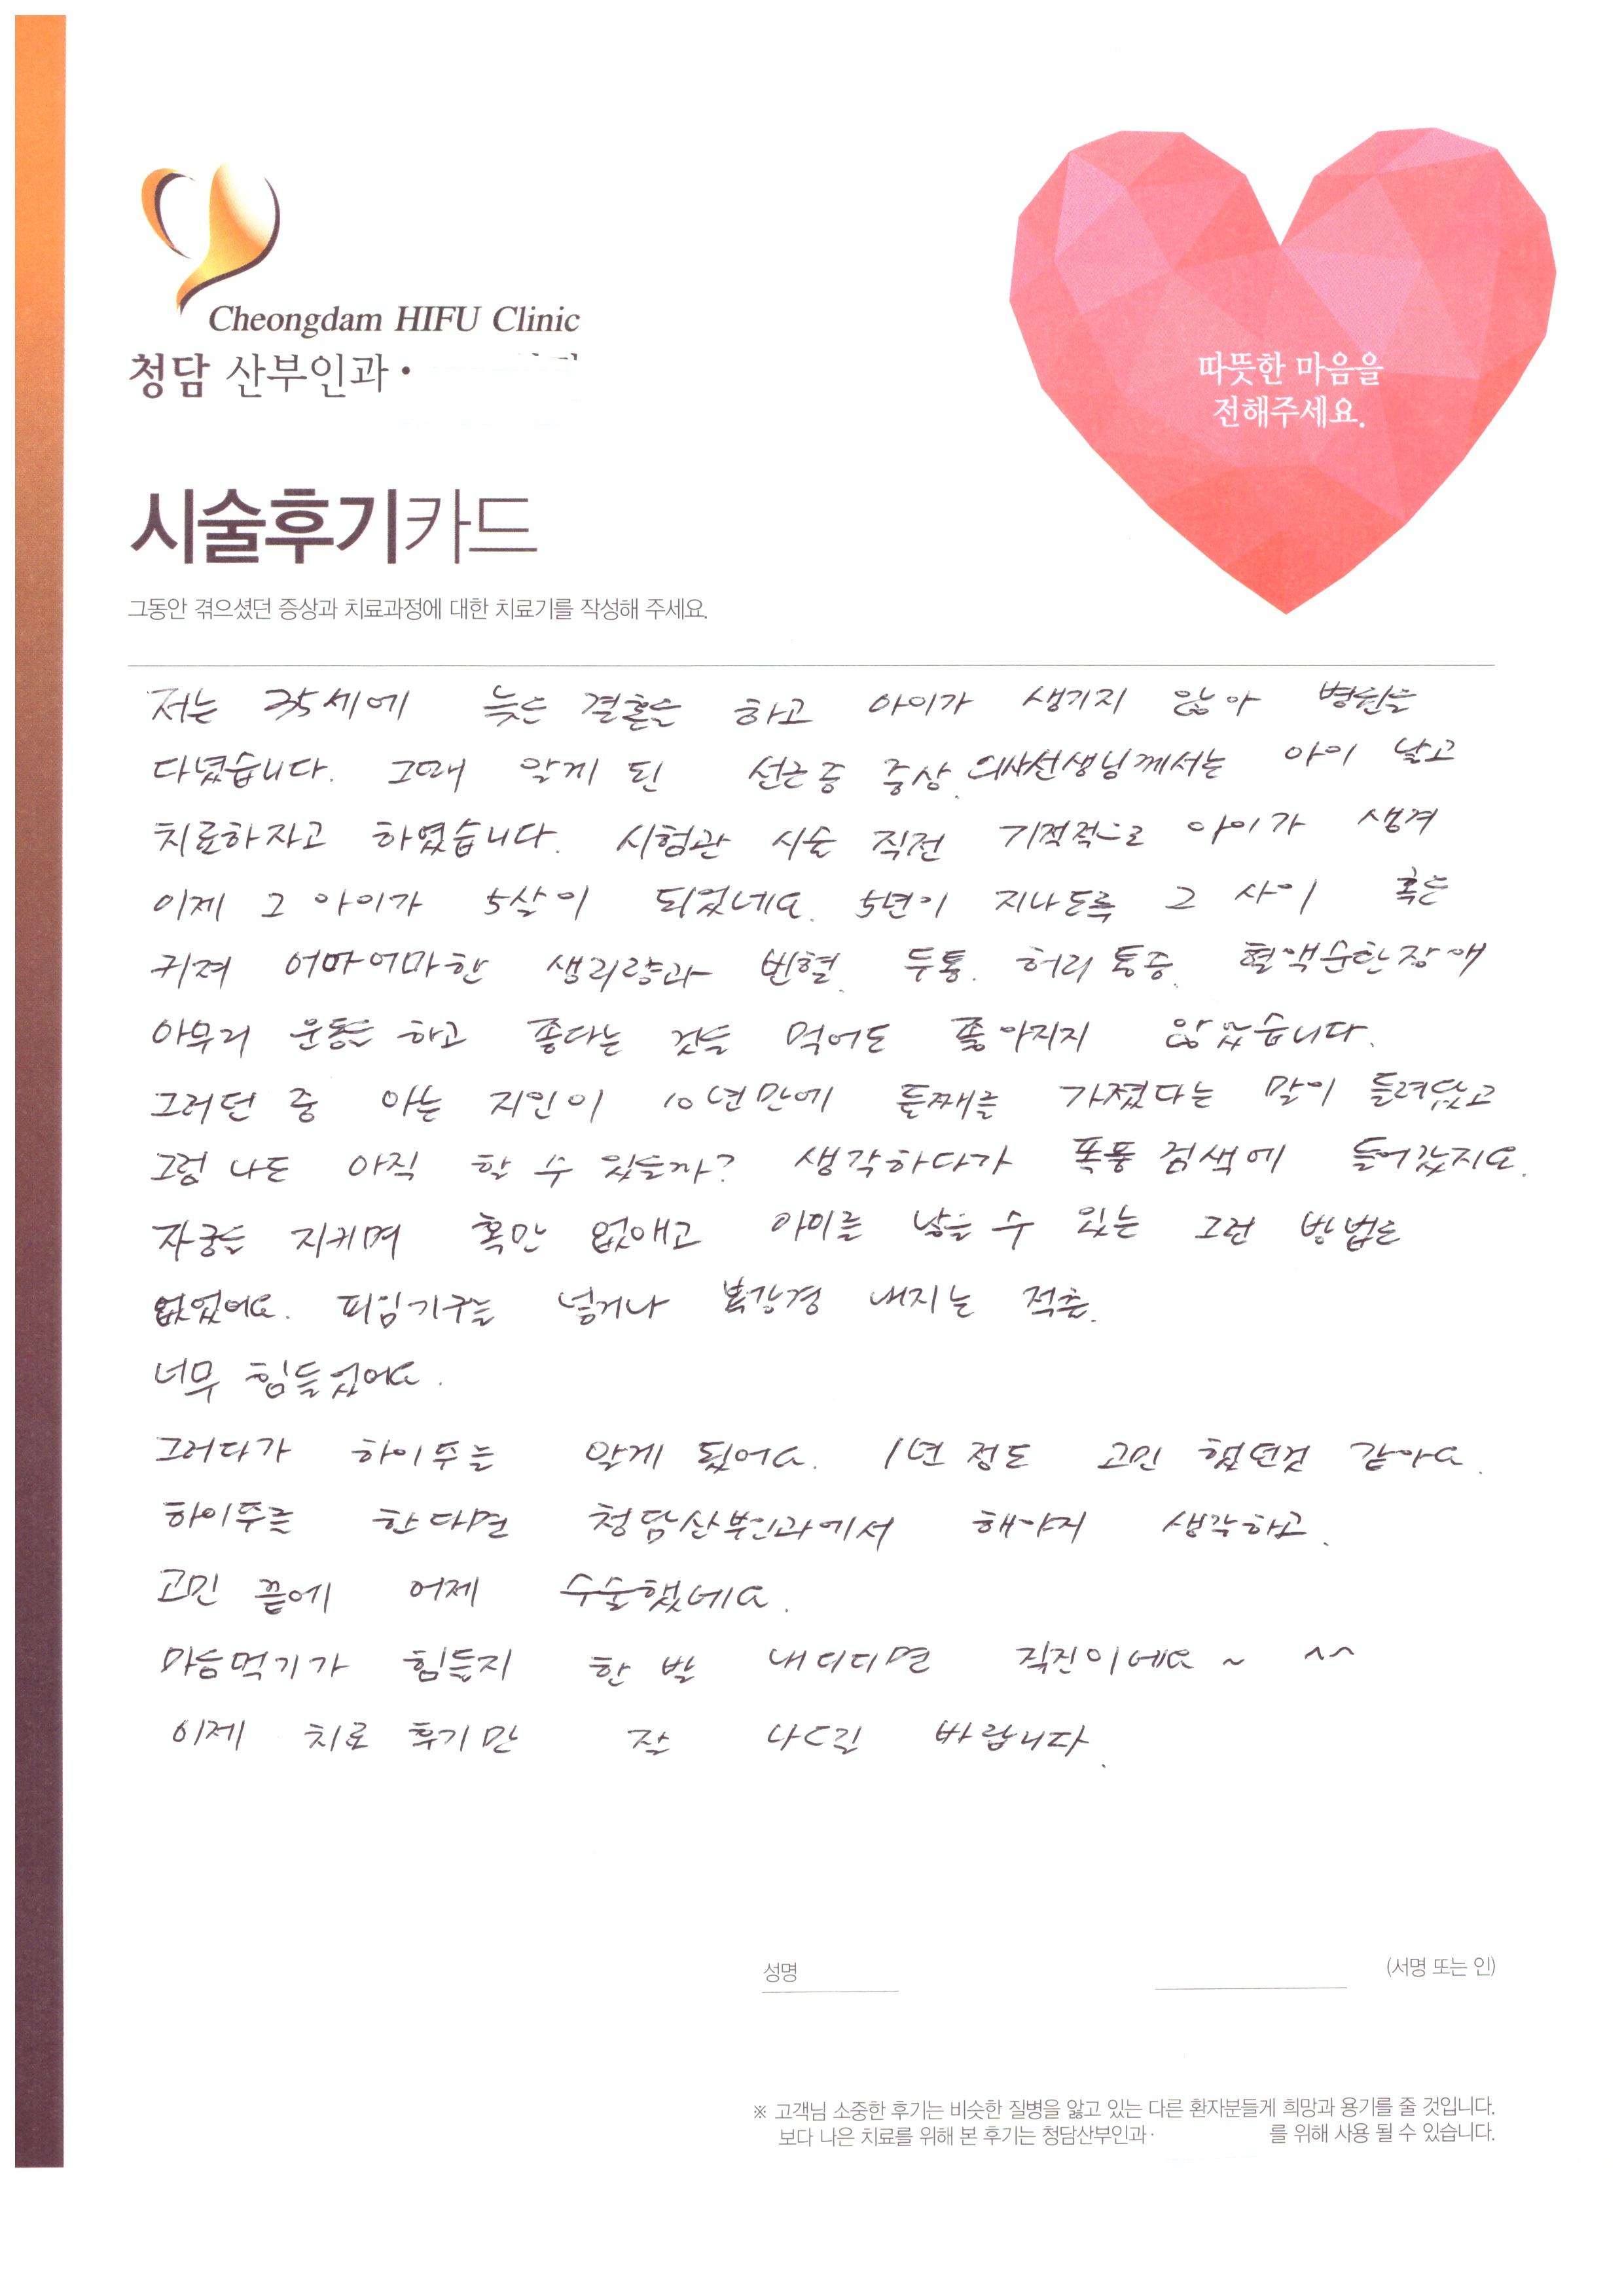 Cheongdam HIFU Clinic
청담 산부인과 •
따뜻한 마음을
전해주세요.
시술후기카드
그동안 겪으셨던 증상과 치료과정에 대한 치료기를 작성해 주세요.
저는 35세에 늦은 결혼을 하고 아이가 생기지 않아 병원을
다녔습니다. 그때 알게 된 선근증 증상. 의사선생님께서는 아이 낳고
치료하자고 하였습니다. 시험관 시술 직전 기적적으로 아이가 생겨
이제 그 아이가 5살이 되었네요. 5년이 지나도록 그 사이 혹은
커져 어마어마한 생리량과 빈혈. 두통. 허리 통증. 혈액순환장애
아무리 운동을 하고 좋다는 것을 먹어도 좋아지지 않았습니다.
그러던 중 아는 지인이 10년만에 둘째를 가졌다는 말이 들려왔고
그럼 나도 아직 할 수 있을까? 생각하다가 폭풍 검색에 들어갔지요.
자궁을 지키며 혹만 없애고 아이를 낳을 수 있는 그런 방법은
없었어요. 피임기구를 넣거나 복강경 내지는 적출.
너무 힘들었어요.
그러다가 하이푸를 알게 됬어요. 1년 정도 고민 했던것 같아요.
하이푸를 한다면 청담산부인과에서 해야지 생각하고.
고민 끝에 어제 수술했네요.
마음먹기가 힘들지 한 발 내디디면 직진이네요~ ^^
이제 치료 후기만 잘 나오길 바랍니다.
성명
(서명 또는 인)
※ 고객님 소중한 후기는 비슷한 질병을 앓고 있는 다른 환자분들게 희망과 용기를 줄 것입니다.
보다 나은 치료를 위해 본 후기는 청담산부인과· 를 위해 사용 될 수 있습니다.